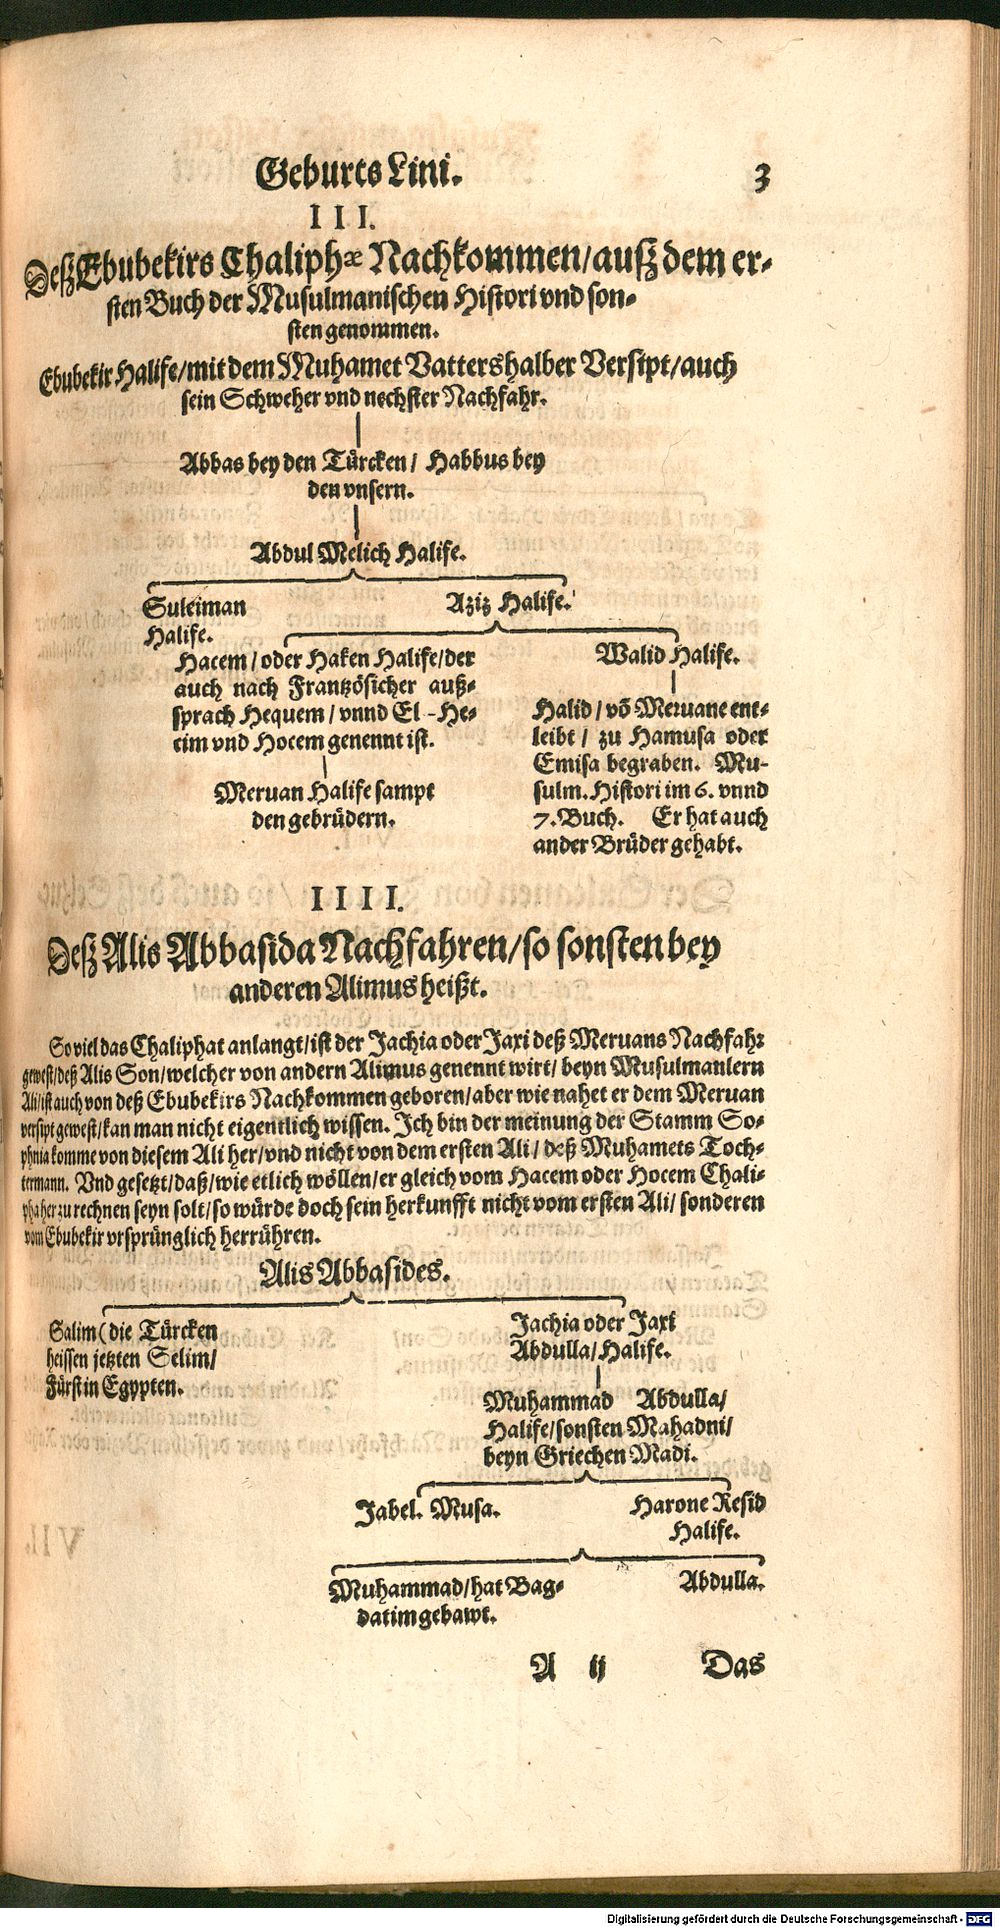 Geburts Lini. 3
III.
Deß Ebubekirs Chaliphæ Nachkommen/ außz dem er-
sten Buch der Musulmanischen Histori vnd son-
sten genommen.
Ebubekir Halife/ mit dem Muhamet Vattershalber Versipt/ auch
sein Schweher vnd nechster Nachfahr.
Abbas bey den Türcken/ Habbus bey
den vnsern.
Abdul Melich Halife.
Suleiman
Halife.
Aziz Halife.
Hacem/ oder Haken Halife/ der
auch nach Frantzösicher auß-
sprach Hequem/ vnnd El-He-
cim vnd Hocem genennt ist.
Meruan Halife sampt
den gebrüdern.
Walid Halife.
Halid/ võ Meruane ent-
leibt/ zu Hamusa oder
Emisa begraben. Mu-
sulm. Histori im 6. vnnd
7. Buch. Er hat auch
ander Brüder gehabt.
IIII.
Deß Alis Abbasida Nachfahren/ so sonsten bey
anderen Alimus heißt.
So viel das Chaliphat anlangt/ ist der Jachia oder Jaxi deß Meruans Nachfahr
gewest/ deß Alis Son/ welcher von andern Alimus genennt wirt/ beyn Musulmanlern
Ali/ ist auch von deß Ebubekirs Nachkommen geboren/ aber wie nahet er dem Meruan
versipt gewest/ kan man nicht eigentlich wissen. Ich bin der meinung der Stamm So-
phnia komme von diesem Ali her/ vnd nicht von dem ersten Ali/ deß Muhamets Toch-
termann. Vnd gesetzt/ daß/ wie etlich wöllen/ er gleich vom Hacem oder Hocem Chali-
pha her zu rechnen seyn solt/ so würde doch sein herkunfft nicht vom ersten Ali/ sonderen
vom Ebubekir vrsprünglich herrühren.
Alis Abbasides.
Salim (die Türcken
heissen jetzten Selim/
Fürst in Egypten.
Jachia oder Jaxi
Abdulla/ Halife.
Muhammad Abdulla/
Halife/ sonsten Mahadni/
beyn Griechen Madi.
Jabel. Musa.
Harone Resid
Halife.
Muhammad/ hat Bag-
datim gebawt.
Abdulla.
A ij Das
Digitalisierung gefördert durch die Deutsche Forschungsgemeinschaft - DFG